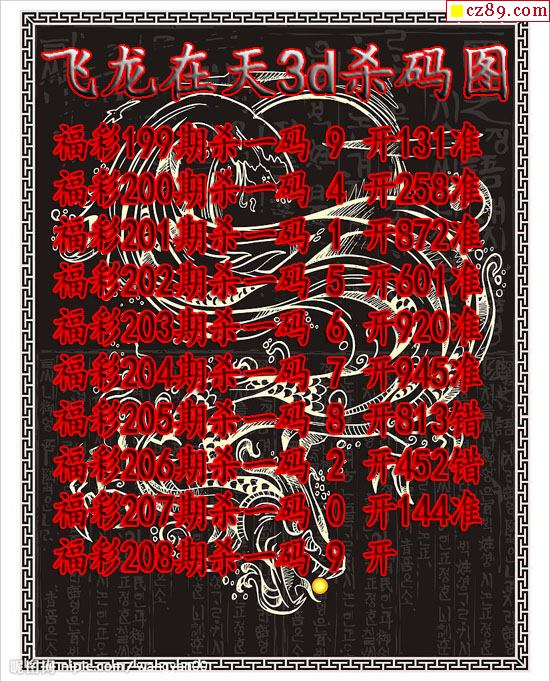 cz89.com
飞龙在天3d杀码图
福彩199期杀一码 9 开131准
福彩200期杀一码 4 开258准
福彩201期杀一码 1 开872准
福彩202期杀一码 5 开601准
福彩203期杀一码 6 开920准
福彩204期杀一码 7 开945准
福彩205期杀一码 8 开813错
福彩206期杀一码 2 开452错
福彩207期杀一码 0 开144准
福彩208期杀一码 9 开